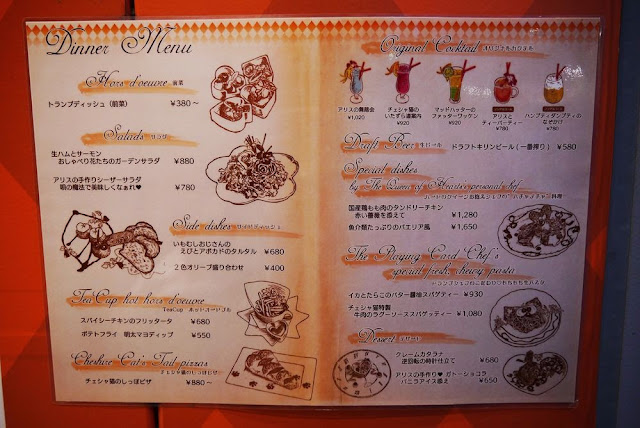 Dinner Menu
Hors d'oeuvre 前菜
トランプディッシュ（前菜） ¥380～
Salads サラダ
生ハムとサーモン
おしゃべり花たちのガーデンサラダ ¥880
アリスの手作りシーザーサラダ
唄の魔法で美味しくなぁれ♥ ¥780
Side dishes サイドディッシュ
いもむしおじさんの
えびとアボカドのタルタル ¥680
2色オリーブ盛り合わせ ¥400
Tea Cup hot hors d'oeuvre
TeaCup ホットオードブル
スパイシーチキンのフリッタータ ¥680
ポテトフライ 明太マヨディップ ¥550
Cheshire Cat's Tail pizzas
チェシャ猫のしっぽピザ
チェシャ猫のしっぽピザ ¥880～
Original Cocktail オリジナルカクテル
アリスの舞踏会
¥1,020
チェシャ猫の
いたずら道案内
¥920
マッドハッターの
ファッターワッケン
¥920
アリスと
ティーパーティー
¥780
ハンプティダンプティの
なぞかけ
¥780
Draft Beer 生ビール
ドラフトキリンビール（一番搾り） ¥580
Special dishes
by The Queen of Hearts's personal chef
国産鶏もも肉のタンドリーチキン
赤い薔薇を添えて ¥1,280
魚介類たっぷりのパエリア風 ¥1,650
The Playing Card Chef's
special fresh, chewy pasta
イカとたらこのバター醤油スパゲティー ¥930
チェシャ猫特製
牛肉のラグーソーススパゲティー ¥1,080
Dessert デザート
クレームカタラナ
逆回転の時計仕立て ¥680
アリスの手作り♥ ガトーショコラ
バニラアイス添え ¥650